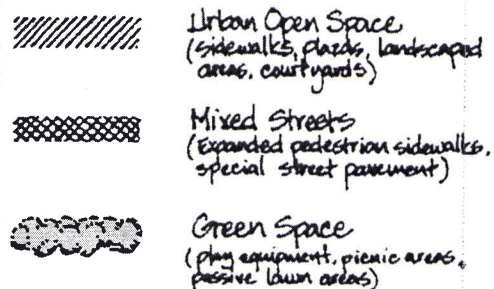 Urban Open Space
(sidewalks, plazas, landscaped
areas, courtyards)
Mixed Streets
(Expanded pedestrian sidewalks,
special street pavement)
Green Space
(play equipment, picnic areas,
passive lawn areas)